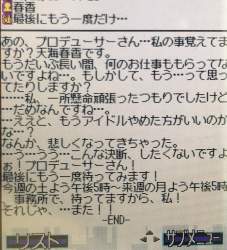 春香
最後にもう一度だけ…
あの、プロデューサーさん…私の事覚えてま
すか？天海春香です。
もうだいぶ長い間、何のお仕事ももらってな
いですよね…。もしかして、もう…って思っ
てたりしますか？
……私、一所懸命頑張ったつもりでしたけど
…だめなんですね…。
…ええと、もうアイドルやめた方がいいのか
な…？
なんか、悲しくなってきちゃった。
…うううう…こんな決断、したくないですよ
ぉ！プロデューサーさん！
最後にもう一度待ってみます！
今週の土よう午後5時～来週の月よう午後5時
、事務所で、待ってますから、私！
それじゃ、…また！
-END-
リスト
サブメニュー